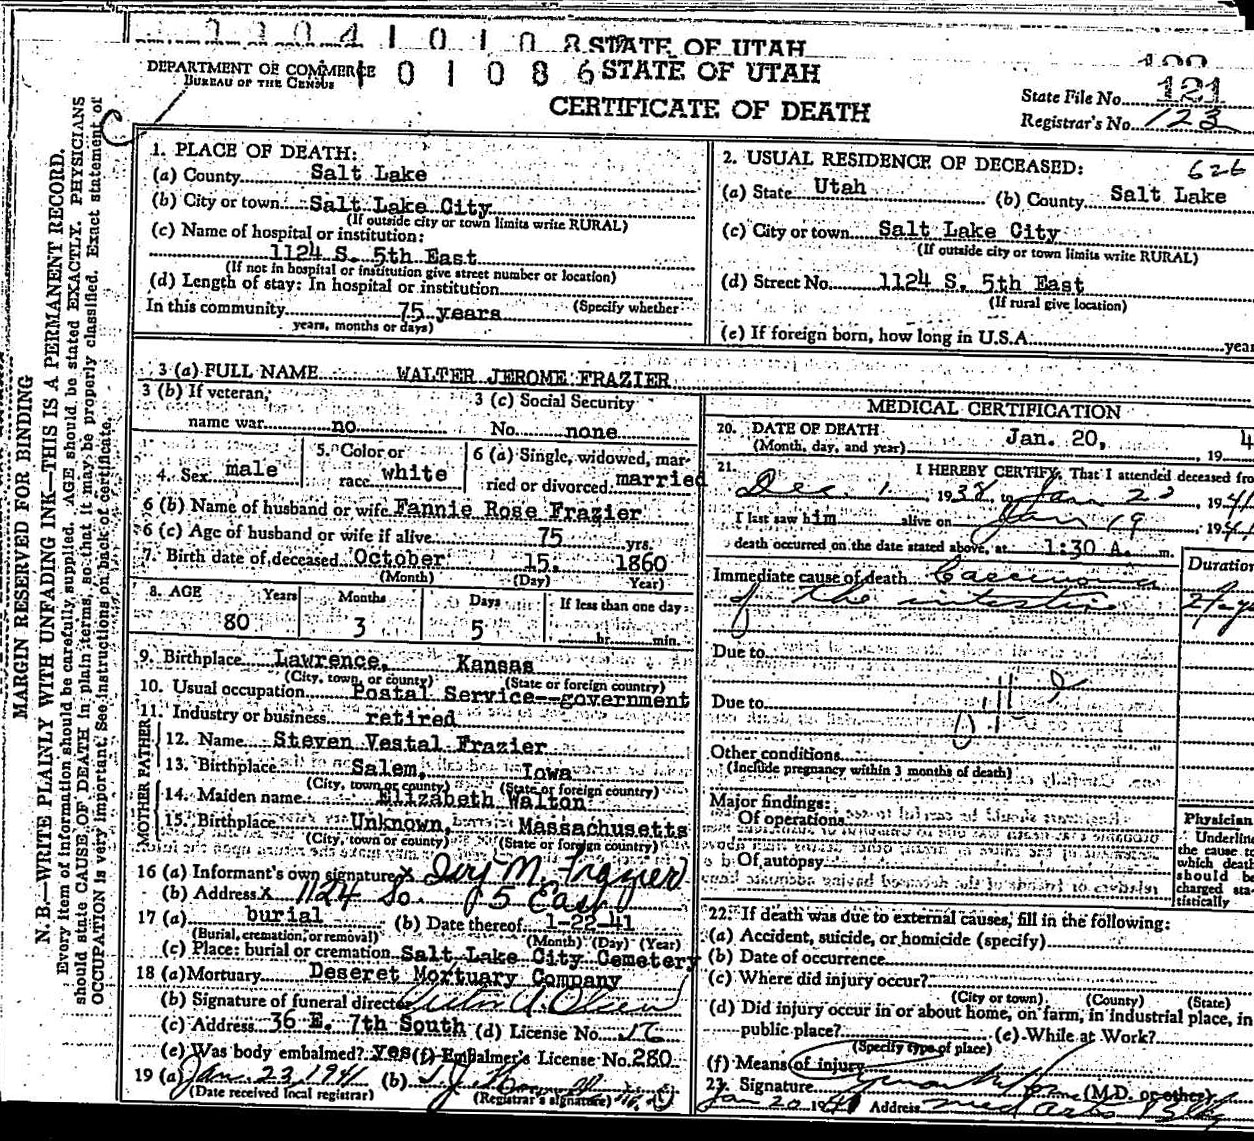 STATE OF UTAH
DEPARTMENT OF COMMERCE
BUREAU OF THE CENSUS
STATE OF UTAH
CERTIFICATE OF DEATH
State File No. 121
Registrar's No. 123
MARGIN RESERVED FOR BINDING
N. B.—WRITE PLAINLY WITH UNFADING INK—THIS IS A PERMANENT RECORD.
Every item of information should be carefully supplied. AGE should be stated EXACTLY. PHYSICIANS
should state CAUSE OF DEATH in plain terms, so that it may be properly classified. Exact statement of
OCCUPATION is very important. See instructions on back of certificate.
1. PLACE OF DEATH:
(a) County Salt Lake
(b) City or town Salt Lake City
(If outside city or town limits write RURAL)
(c) Name of hospital or institution:
1124 S. 5th East
(If not in hospital or institution give street number or location)
(d) Length of stay: In hospital or institution
(Specify whether
In this community 75 years
years, months or days)
2. USUAL RESIDENCE OF DECEASED: 626
(a) State Utah (b) County Salt Lake
(c) City or town Salt Lake City
(If outside city or town limits write RURAL)
(d) Street No. 1124 S. 5th East
(If rural give location)
(e) If foreign born, how long in U.S.A. year
3 (a) FULL NAME WALTER JEROME FRAZIER
3 (b) If veteran, name war no
3 (c) Social Security No. none
4. Sex male
5. Color or race white
6 (a) Single, widowed, married or divorced married
6 (b) Name of husband or wife Fannie Rose Frazier
6 (c) Age of husband or wife if alive 75 yrs.
7. Birth date of deceased October 15, 1860
(Month) (Day) (Year)
8. AGE Years Months Days If less than one day:
80 3 5 hr. min.
9. Birthplace Lawrence, Kansas
(City, town, or county) (State or foreign country)
10. Usual occupation Postal Service--government
11. Industry or business retired
FATHER
12. Name Steven Vestal Frazier
13. Birthplace Salem, Iowa
(City, town or county) (State or foreign country)
MOTHER
14. Maiden name Elizabeth Walton
15. Birthplace Unknown, Massachusetts
(City, town or county) (State or foreign country)
16 (a) Informant's own signature X M. Frazier
(b) Address X 1124 So. 5 East
17 (a) burial (b) Date thereof 1-22-41
(Burial, cremation, or removal) (Month) (Day) (Year)
(c) Place: burial or cremation Salt Lake City Cemetery
18 (a) Mortuary Deseret Mortuary Company
(b) Signature of funeral director A. Olsen
(c) Address 36 E. 7th South (d) License No.
(e) Was body embalmed? yes (f) Embalmer's License No. 280
19 (a) Jan. 23, 1941 (b)
(Date received local registrar) (Registrar's signature)
MEDICAL CERTIFICATION
20. DATE OF DEATH Jan. 20, 19 4
(Month, day, and year)
21. I HEREBY CERTIFY, That I attended deceased fro
Dec. 1, 1938, to Jan 1941
I last saw him alive on Jan 19, 1941
death occurred on the date stated above, at 1:30 A. m.
Duration
Immediate cause of death Carcinoma
of the intestine
Due to
Due to
Other conditions
(Include pregnancy within 3 months of death)
Major findings:
Of operations
Of autopsy
Physician
Underline
the cause to
which death
should be
charged sta-
tistically
22. If death was due to external causes, fill in the following:
(a) Accident, suicide, or homicide (specify)
(b) Date of occurrence
(c) Where did injury occur?
(City or town) (County) (State)
(d) Did injury occur in or about home, on farm, in industrial place, in
public place? (e) While at Work?
(Specify type of place)
(f) Means of injury
23. Signature (M.D. or other)
Jan 20 1941 Address Med Arts Bldg